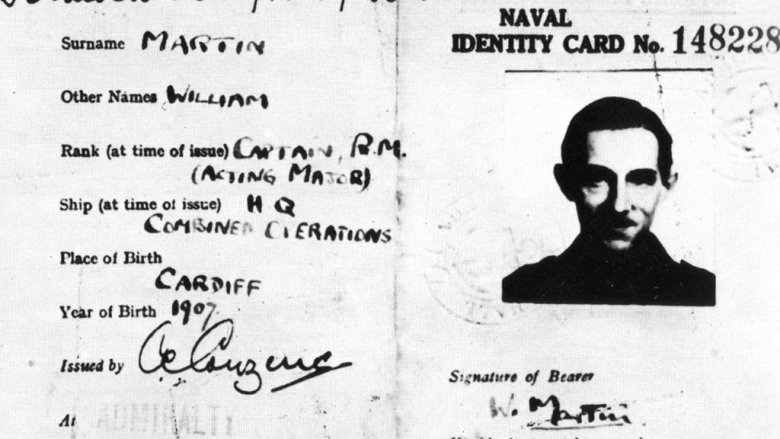 Surname MARTIN
Other Names WILLIAM
Rank (at time of issue) CAPTAIN, R.M.
(ACTING MAJOR)
Ship (at time of issue) H Q
COMBINED OPERATIONS
Place of Birth
CARDIFF
Year of Birth 1907
Issued by
ADMIRALTY
NAVAL
IDENTITY CARD No. 148228
Signature of Bearer
W. Martin